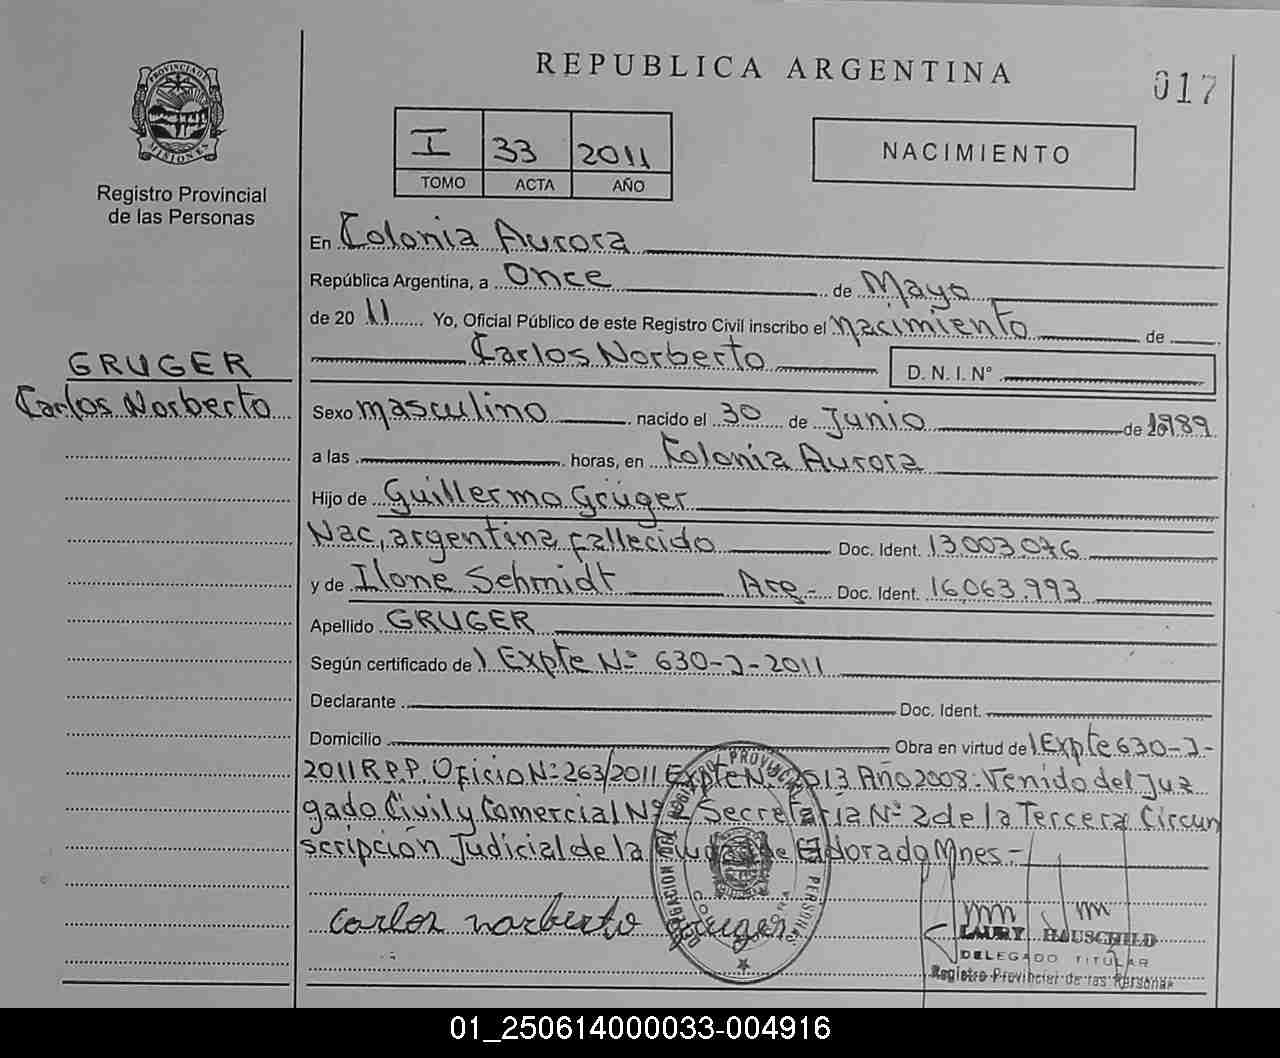 REPUBLICA ARGENTINA
017
PROVINCIA DE
MISIONES
Registro Provincial
de las Personas
I 33 2011
TOMO ACTA AÑO
NACIMIENTO
En Colonia Aurora
República Argentina, a Once de Mayo
de 20 11 Yo, Oficial Público de este Registro Civil inscribo el nacimiento de
Carlos Norberto D. N. I. Nº
GRUGER
Carlos Norberto
Sexo masculino nacido el 30 de Junio de 1989
a las horas, en Colonia Aurora
Hijo de Guillermo Grüger
Nac, argentina fallecido Doc. Ident. 13.003.076
y de Ilone Schmidt Arg.- Doc. Ident. 16.063.993
Apellido GRUGER
Según certificado de Expte Nº 630-J-2011
Declarante Doc. Ident.
Domicilio Obra en virtud de Expte 630-J-
2011 R.P.P. Oficio Nº 263/2011 Expte Nº 2013 Año 2008: Venido del Juz
gado Civil y Comercial Nº Secretaría Nº 2 de la Tercera Circun
scripción Judicial de la de Eldorado Mnes-
Carlos norberto Gruger
LAURY HAUSCHILD
DELEGADO TITULAR
Registro Provincial de las Personas
01_250614000033-004916